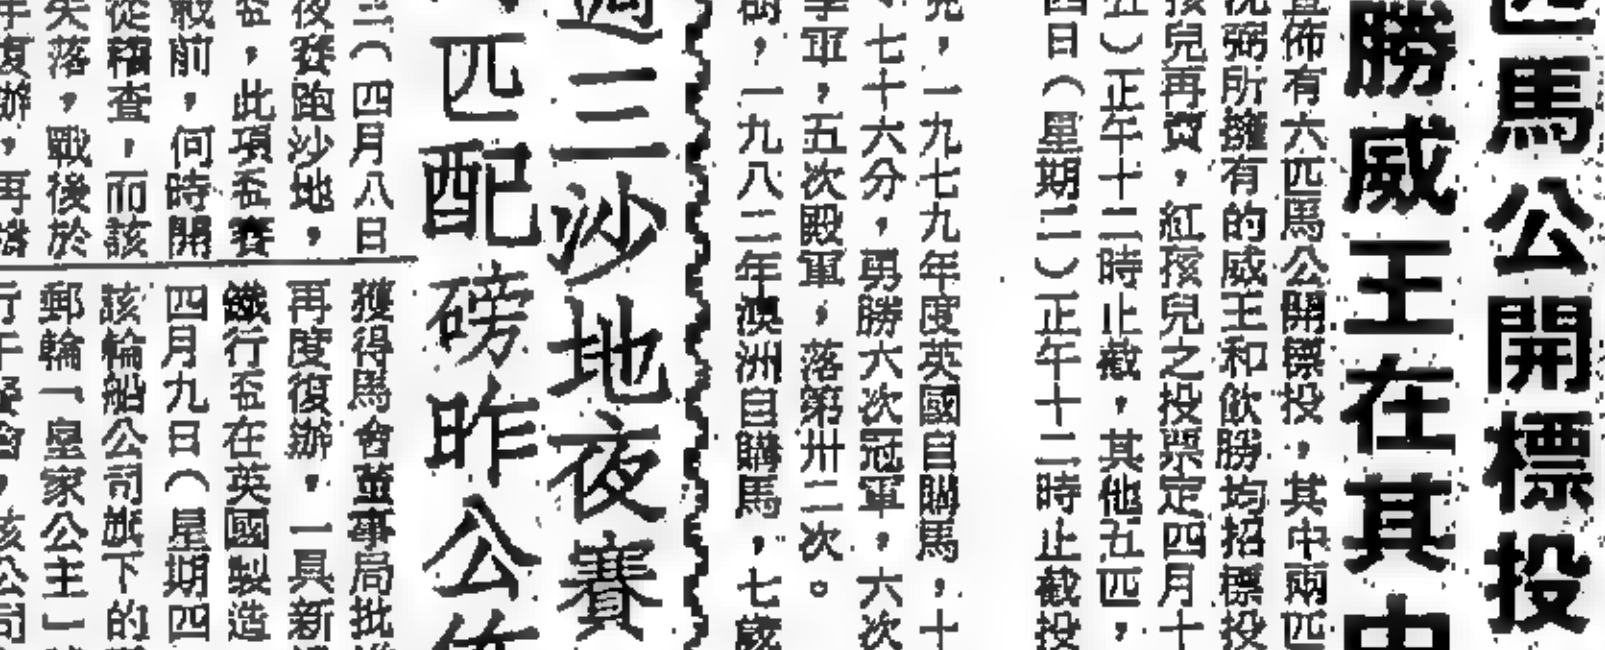 匹馬公開標投
勝威王在其中
宣佈有六匹馬公開標投，其中兩匹
沈弼所擁有的威王和飲勝均招標投
孩兒再賣，紅孩兒之投票定四月十
五）正午十二時止截，其他五匹，
四日（星期二）正午十二時止截投
，一九七九年度英國自購馬，十
七十六分，勇勝六次冠軍，六次
季軍，五次殿軍，落第卅二次。
，一九八二年澳洲自購馬，七歲
週三沙地夜賽
匹配磅昨公佈
三（四月八日
夜賽跑沙地，
盃，此項盃賽
戰前，何時開
從稽查，而該
失落，戰後於
年復辦，再
獲得馬會董事局批
再度復辦，一具新
鐵行盃在英國製造
四月九日（星期四
該輪船公司旗下的
郵輪「皇家公主」